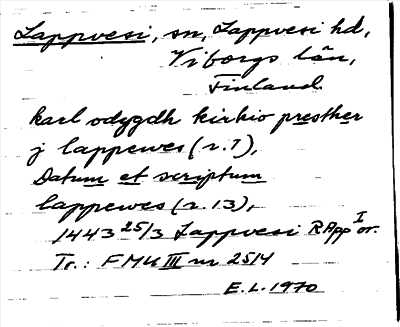 Lappvesi, sn, Lappvesi hd,
Viborgs län,
Finland.
karl odygdh kirkio presther
j lappewes (r. 7),
Datum et scriptum
lappewes (r. 13),
1443 25/3 Lappvesi RApp I or.
Tr.: FMU III nr 2514
E.L. 1970